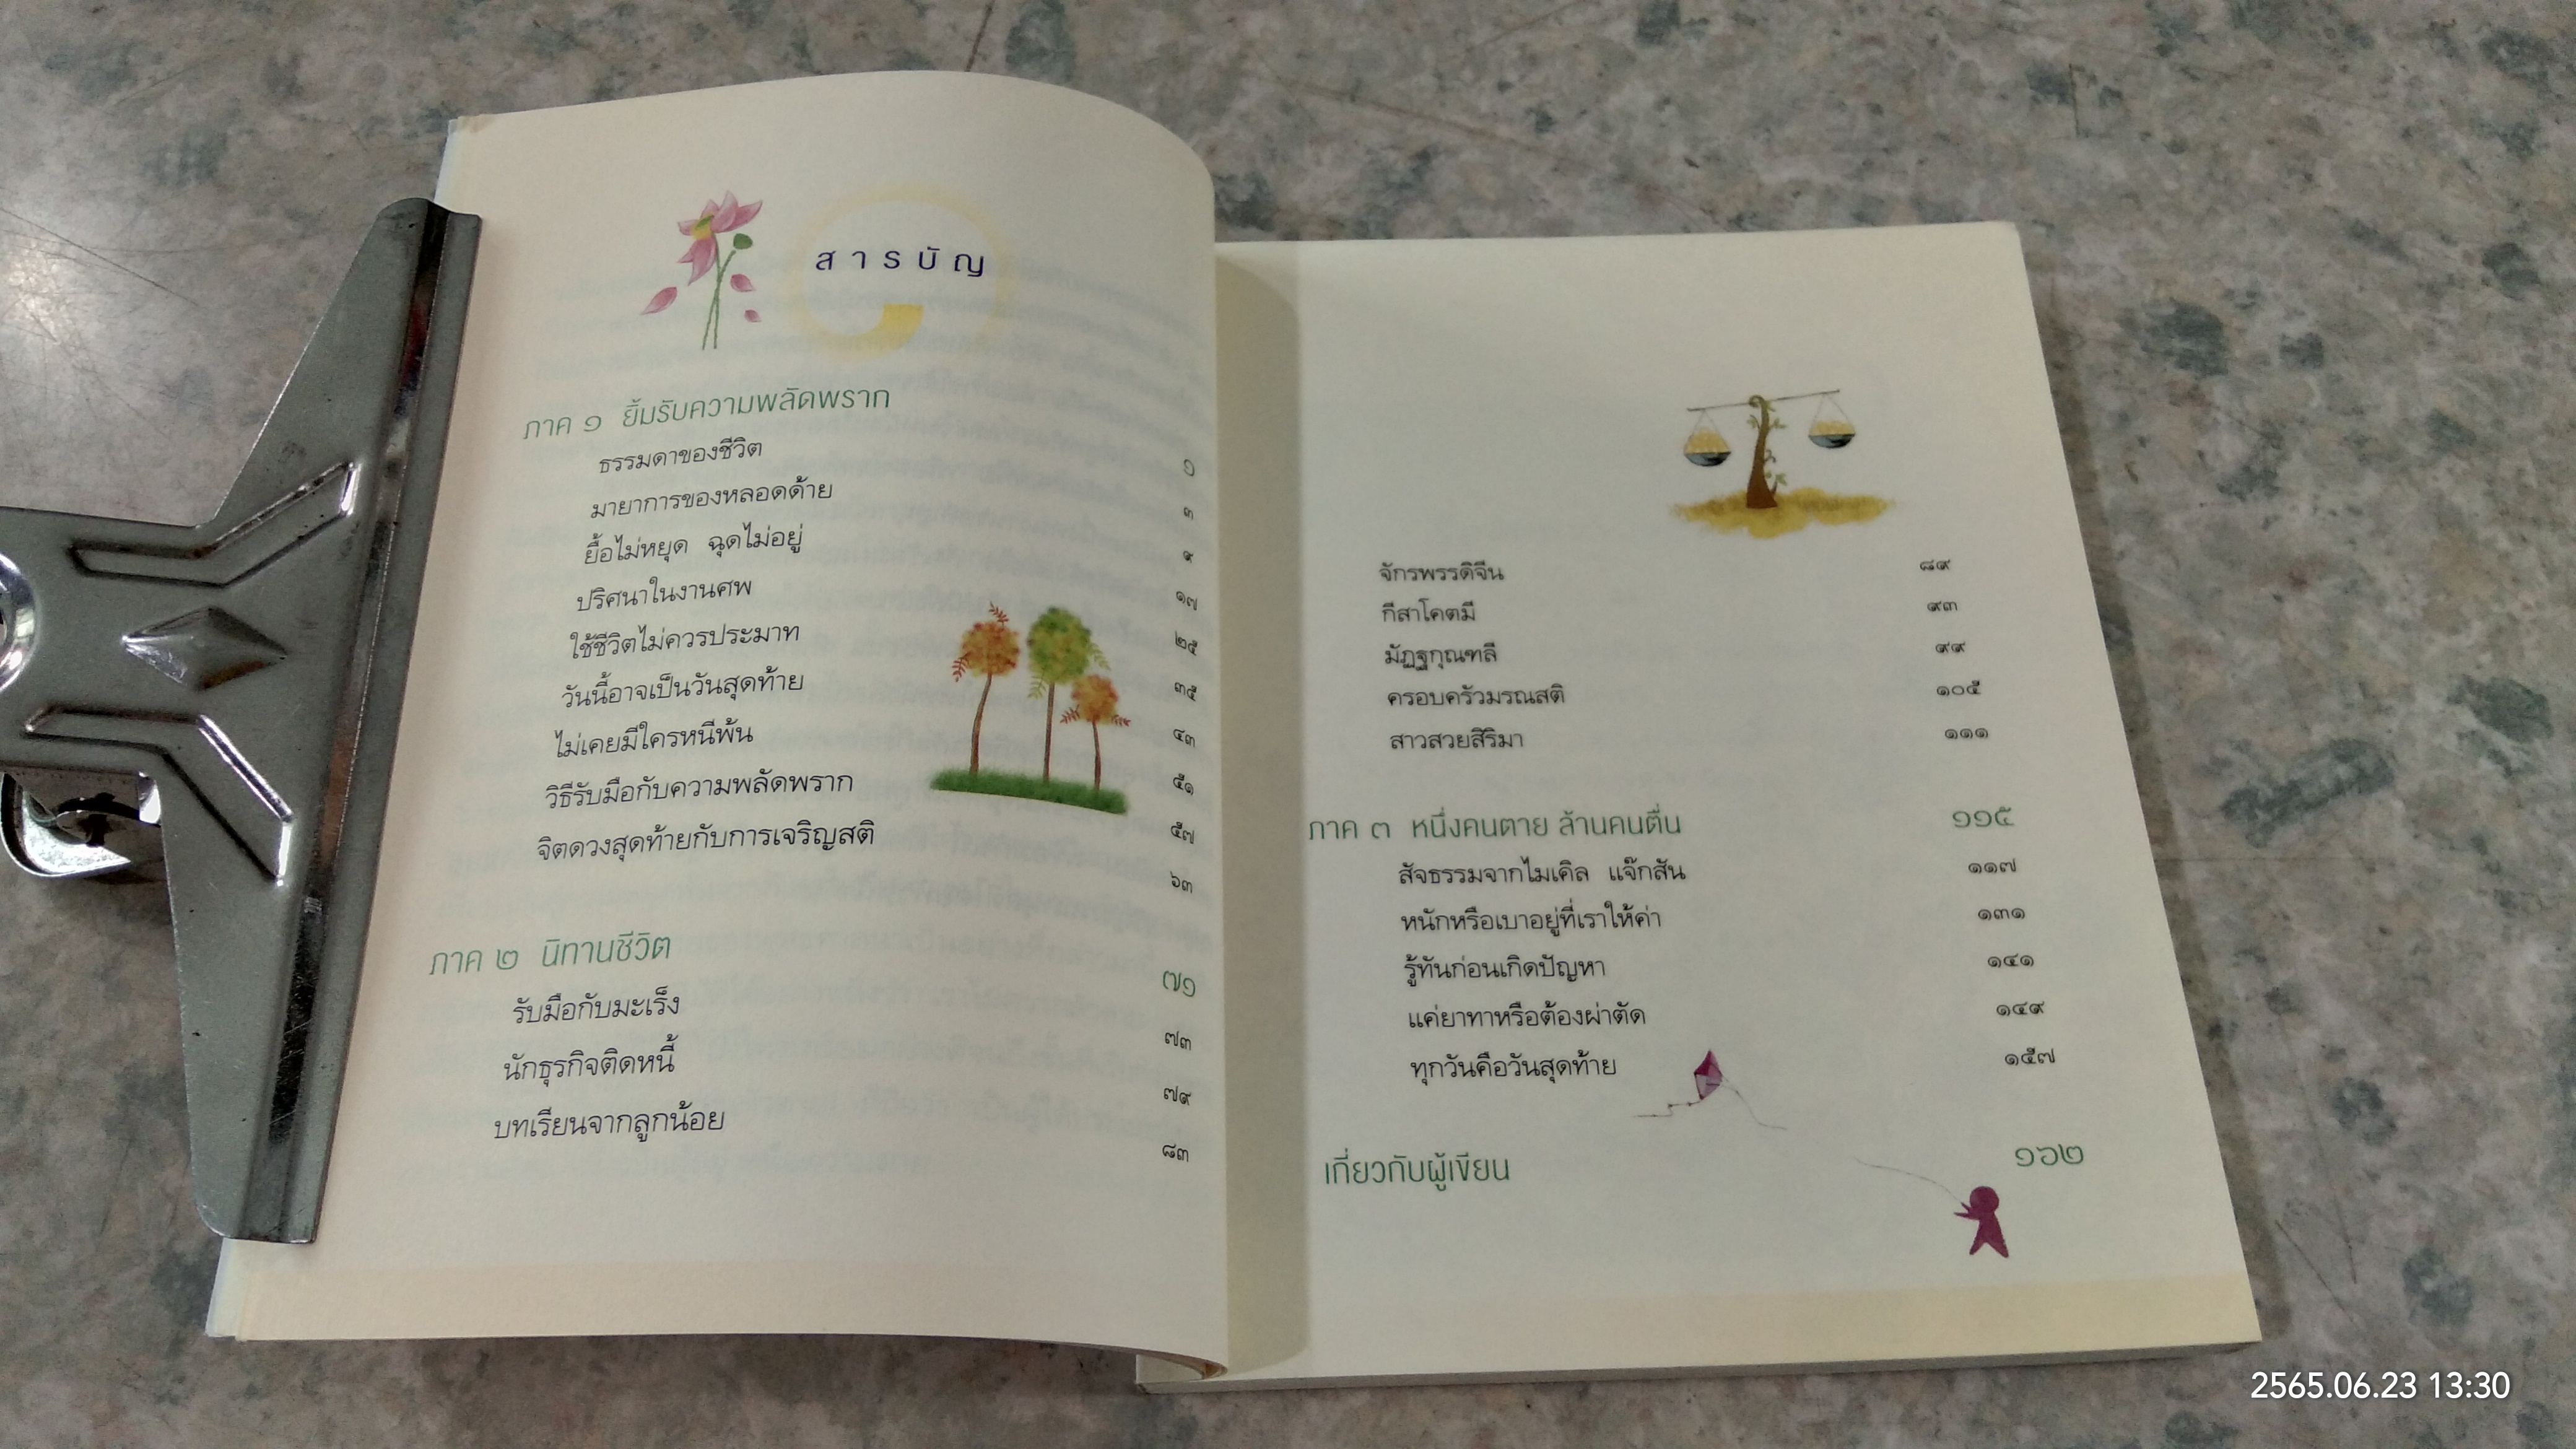 สารบัญ
ภาค ๑ ยิ้มรับความพลัดพราก ๑
ธรรมดาของชีวิต ๓
มายาการของหลอดด้าย ๙
ยื้อไม่หยุด ฉุดไม่อยู่ ๑๗
ปริศนาในงานศพ ๒๕
ใช้ชีวิตไม่ควรประมาท ๓๕
วันนี้อาจเป็นวันสุดท้าย ๔๓
ไม่เคยมีใครหนีพ้น ๕๑
วิธีรับมือกับความพลัดพราก ๕๗
จิตดวงสุดท้ายกับการเจริญสติ ๖๓
ภาค ๒ นิทานชีวิต ๗๑
รับมือกับมะเร็ง ๗๓
นักธุรกิจติดหนี้ ๗๙
บทเรียนจากลูกน้อย ๘๓
จักรพรรดิจีน ๘๙
กีสาโคตมี ๙๓
มัฏฐกุณฑลี ๙๙
ครอบครัวมรณสติ ๑๐๕
สาวสวยสิริมา ๑๑๑
ภาค ๓ หนึ่งคนตาย ล้านคนตื่น ๑๑๕
สัจธรรมจากไมเคิล แจ๊กสัน ๑๑๗
หนักหรือเบาอยู่ที่เราให้ค่า ๑๓๑
รู้ทันก่อนเกิดปัญหา ๑๔๑
แค่ยาทาหรือต้องผ่าตัด ๑๔๙
ทุกวันคือวันสุดท้าย ๑๕๗
เกี่ยวกับผู้เขียน ๑๖๒
2565.06.23 13:30